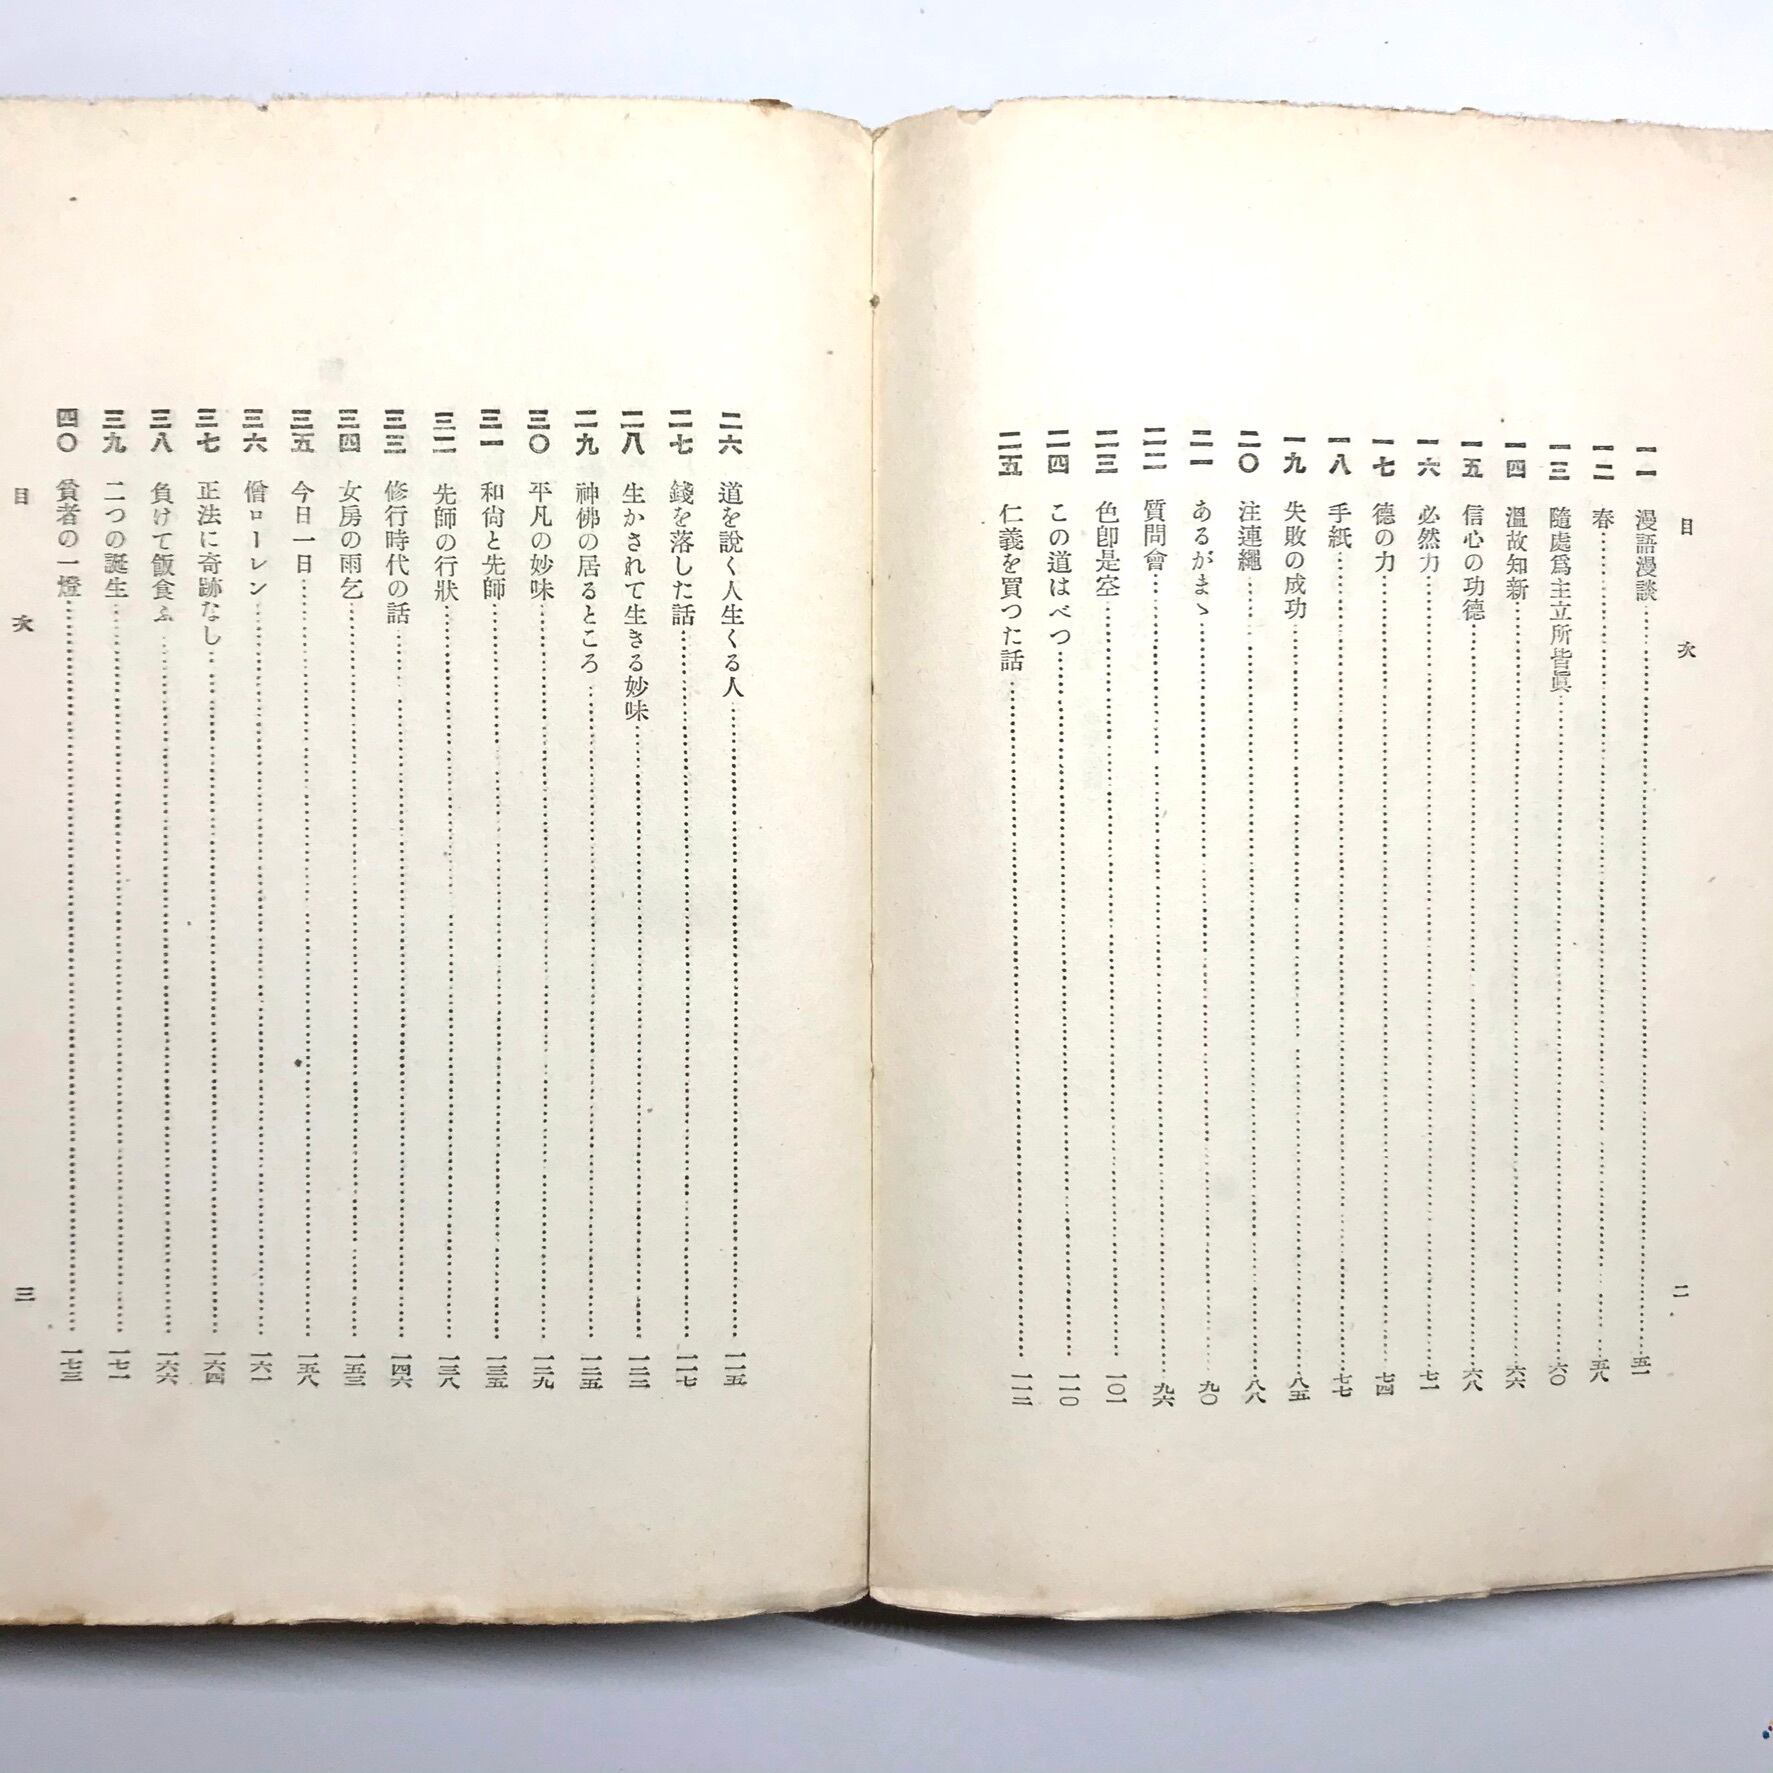 目次
二
一一 漫語漫談 五一
一二 春 五八
一三 隨處爲主立所皆眞 六〇
一四 溫故知新 六六
一五 信心の功德 六八
一六 必然力 七一
一七 德の力 七四
一八 手紙 七七
一九 失敗の成功 八五
二〇 注連繩 八八
二一 あるがまゝ 九〇
二二 質問會 九六
二三 色卽是空 一〇一
二四 この道はべつ 一一〇
二五 仁義を買つた話 一一二
二六 道を說く人生くる人 一一五
二七 錢を落した話 一一七
二八 生かされて生きる妙味 一二二
二九 神佛の居るところ 一二五
三〇 平凡の妙味 一二九
三一 和尙と先師 一三五
三二 先師の行狀 一三八
三三 修行時代の話 一四六
三四 女房の雨乞 一五三
三五 今日一日 一五八
三六 僧ローレン 一六一
三七 正法に奇跡なし 一六四
三八 負けて飯食ふ 一六六
三九 二つの誕生 一七一
四〇 貧者の一燈 一七三
目次
三